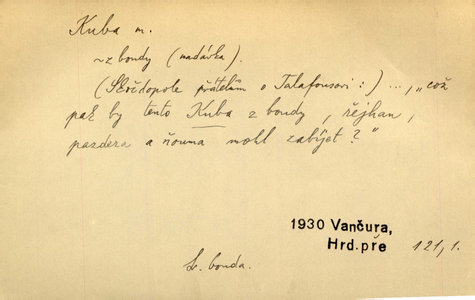 Kuba m.
~ z boudy (nadávka).
(Skřdopole přátelům o Talafousovi:) ..., "což
pak by tento Kuba z boudy, řejhan,
pazdera a ňouma mohl zabíjet?"
1930 Vančura,
Hrd.pře 121,1.
bouda.